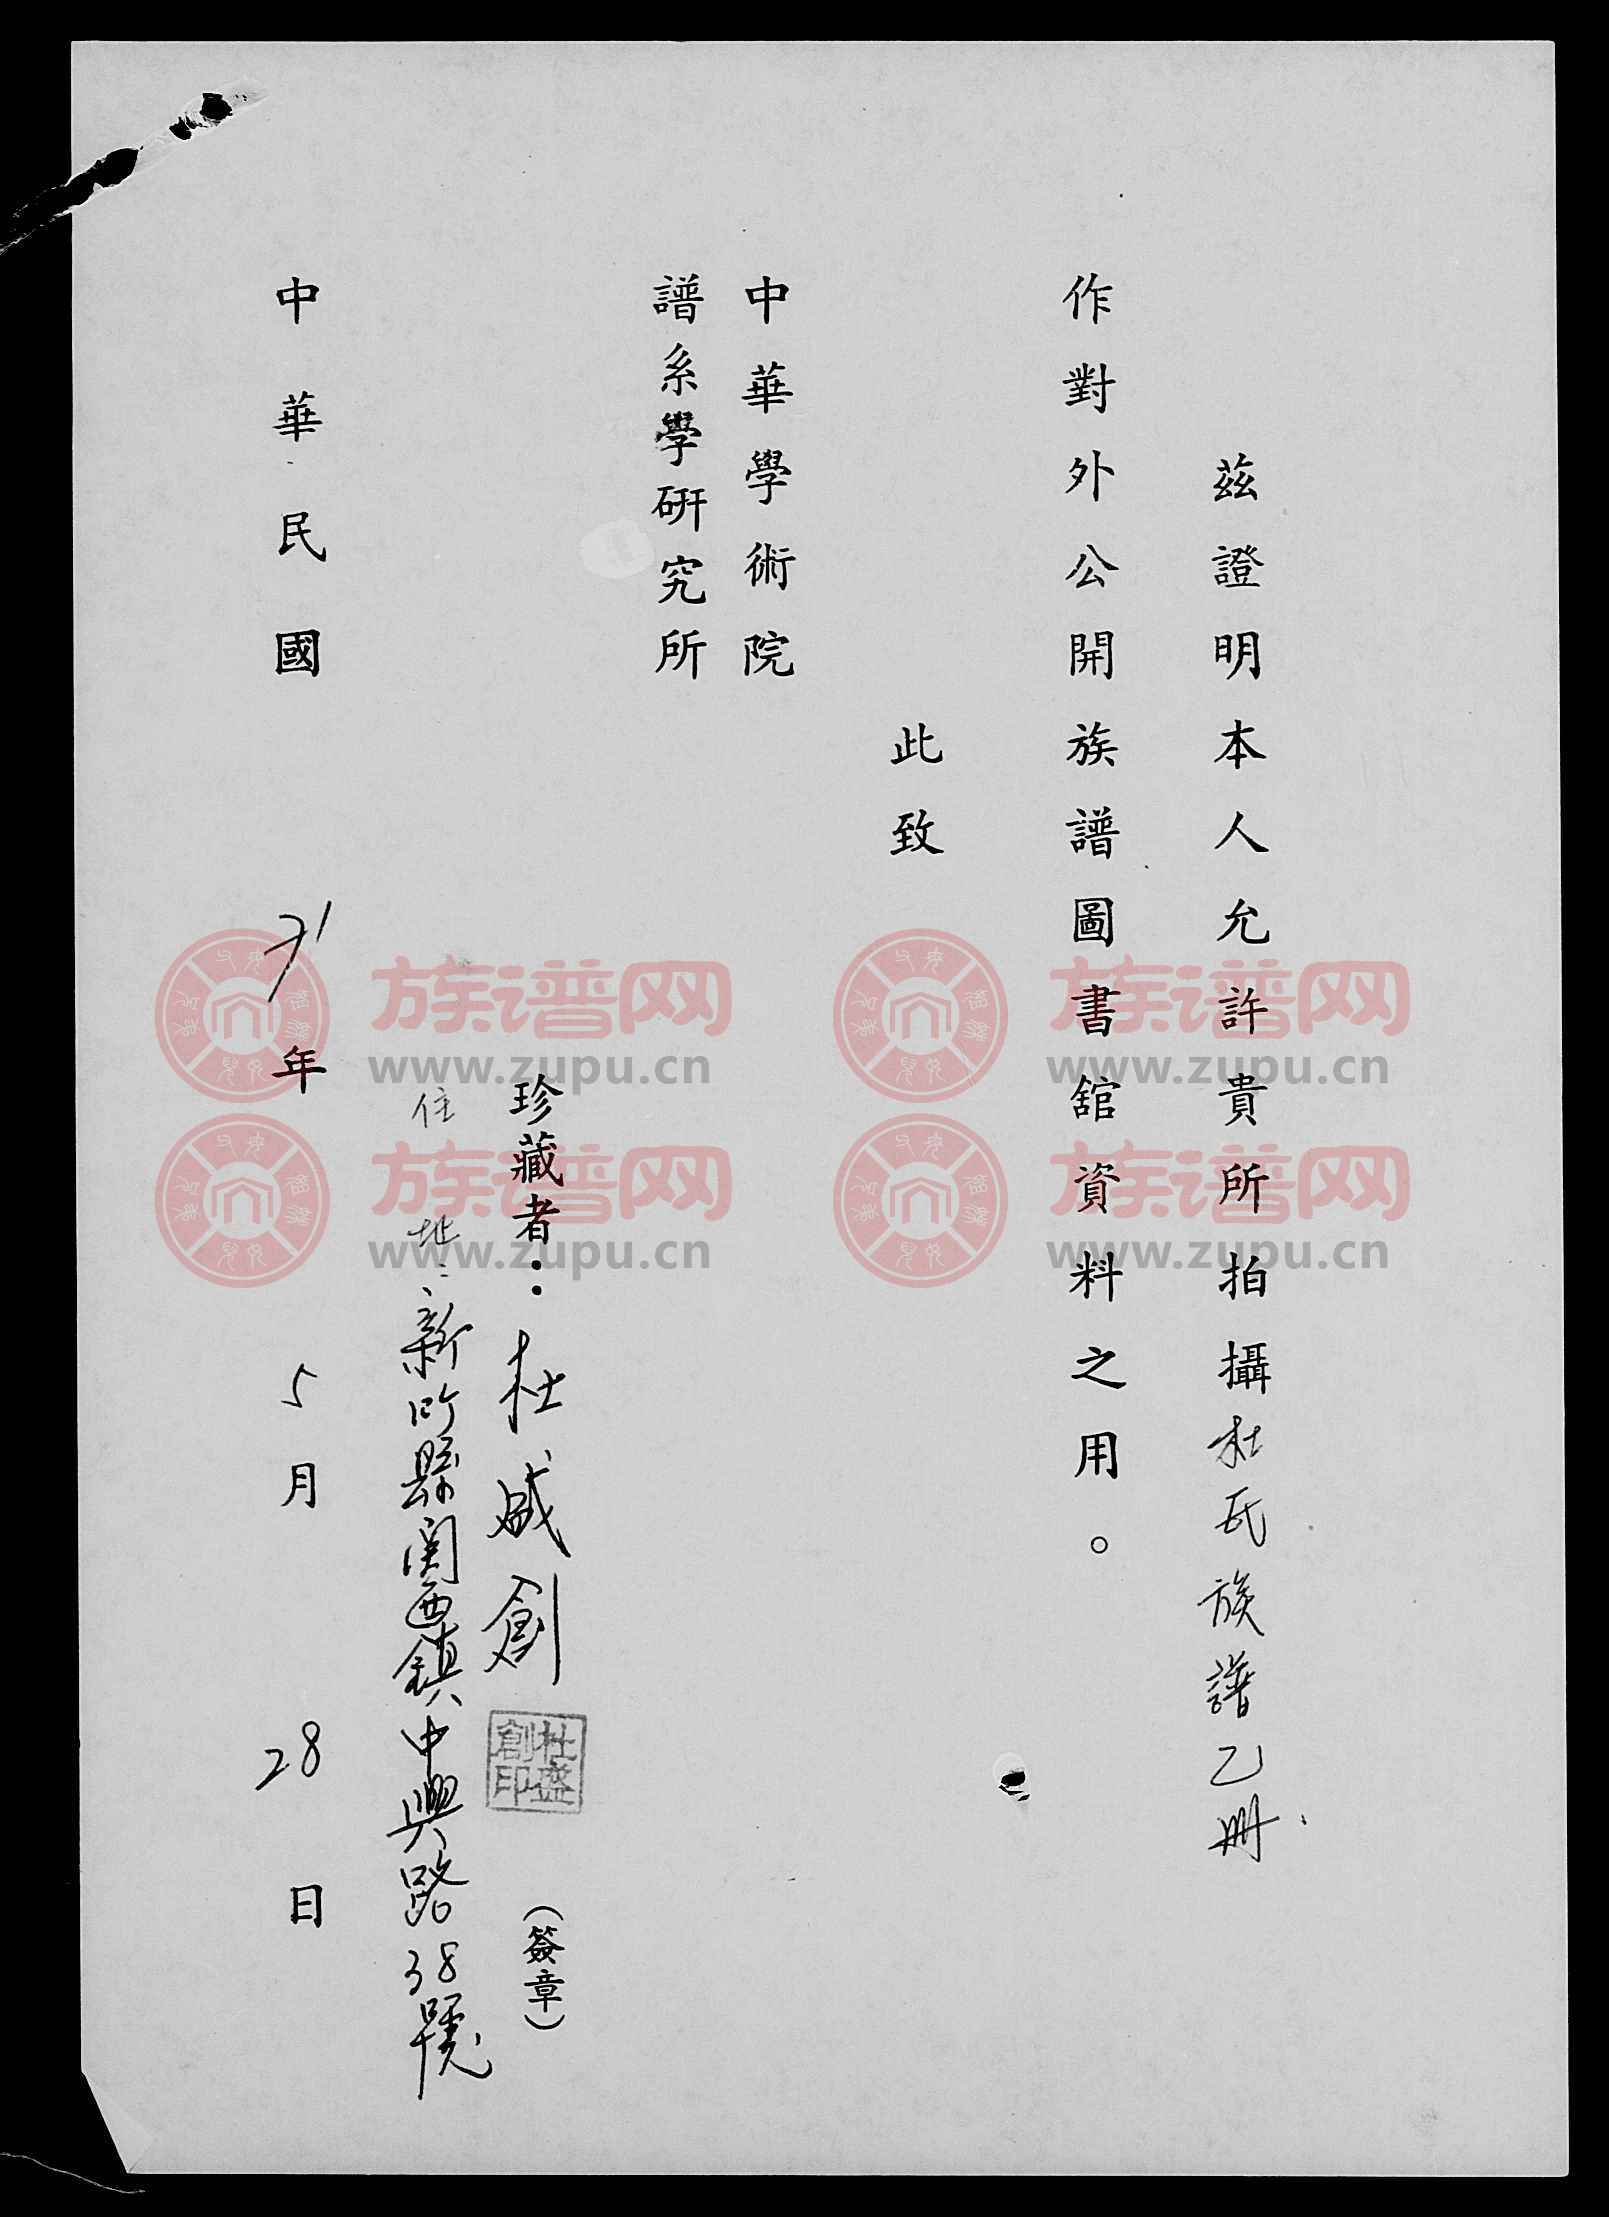 茲證明本人允許貴所拍攝杜氏族譜乙冊
作對外公開族譜圖書舘資料之用。
此致
中華學術院
譜系學研究所
珍藏者：杜盛創
杜盛創印
（簽章）
住址：新竹縣関西鎮中興路38號
中華民國71年5月28日
族谱网
www.zupu.cn
族谱网
www.zupu.cn
族谱网
www.zupu.cn
族谱网
www.zupu.cn